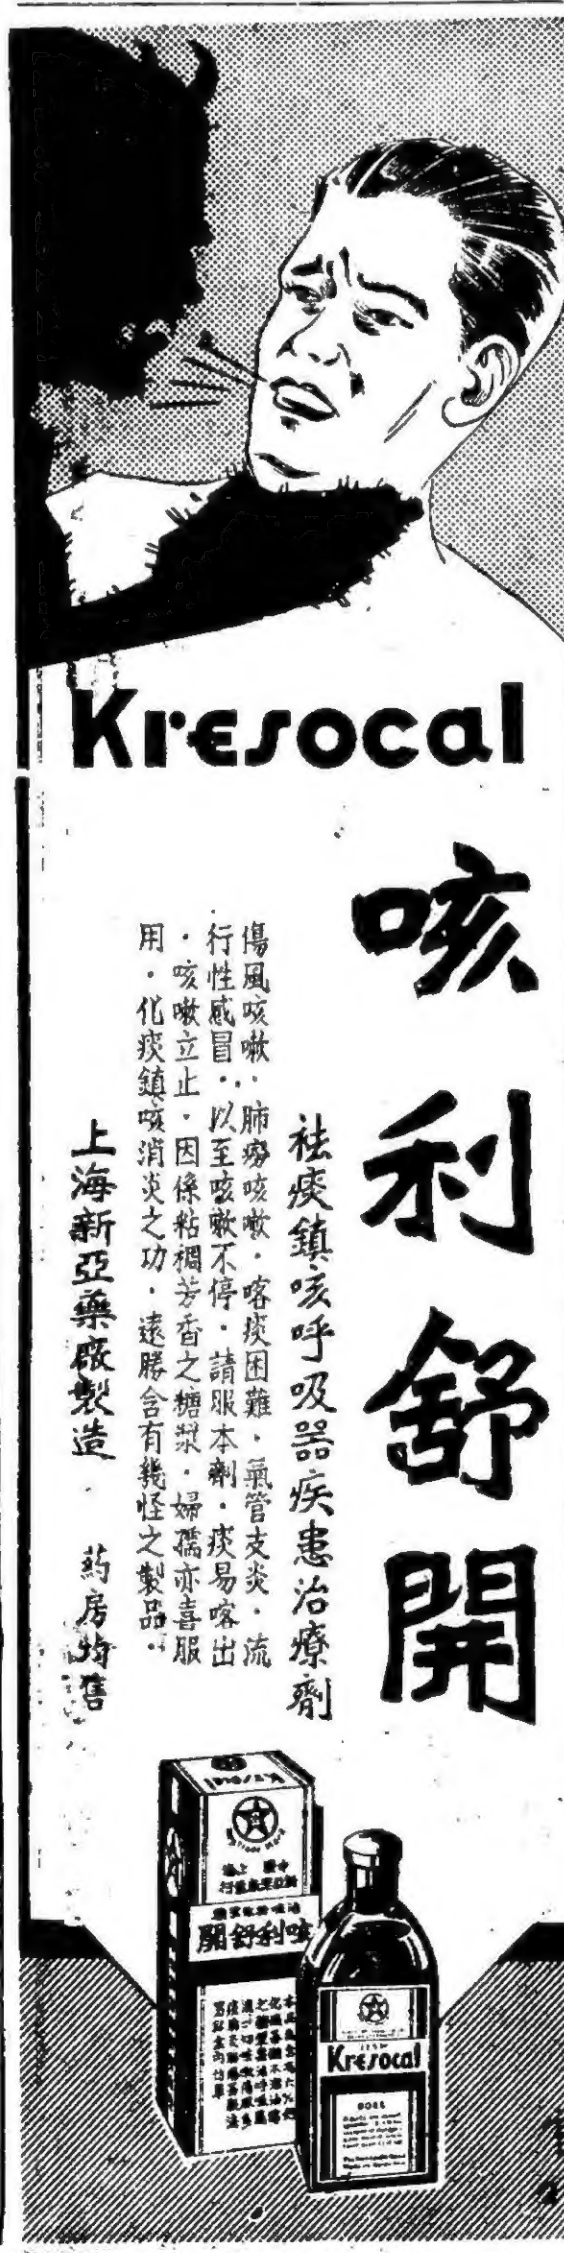 Kresocal
咳利舒開
祛痰鎮咳呼吸器疾患治療劑
傷風咳嗽．肺癆咳嗽．喀痰困難．氣管支炎．流
行性感冒．以至咳嗽不停．請服本劑．痰易喀出
．咳嗽立止．因係粘稠芳香之糖漿．婦孺亦喜服
用．化痰鎮咳消炎之功．遠勝含有幾怪之製品．
上海新亞藥廠製造
葯房均售
Kresocal
Trade Mark
開舒利咳
Kresocal
DOSE